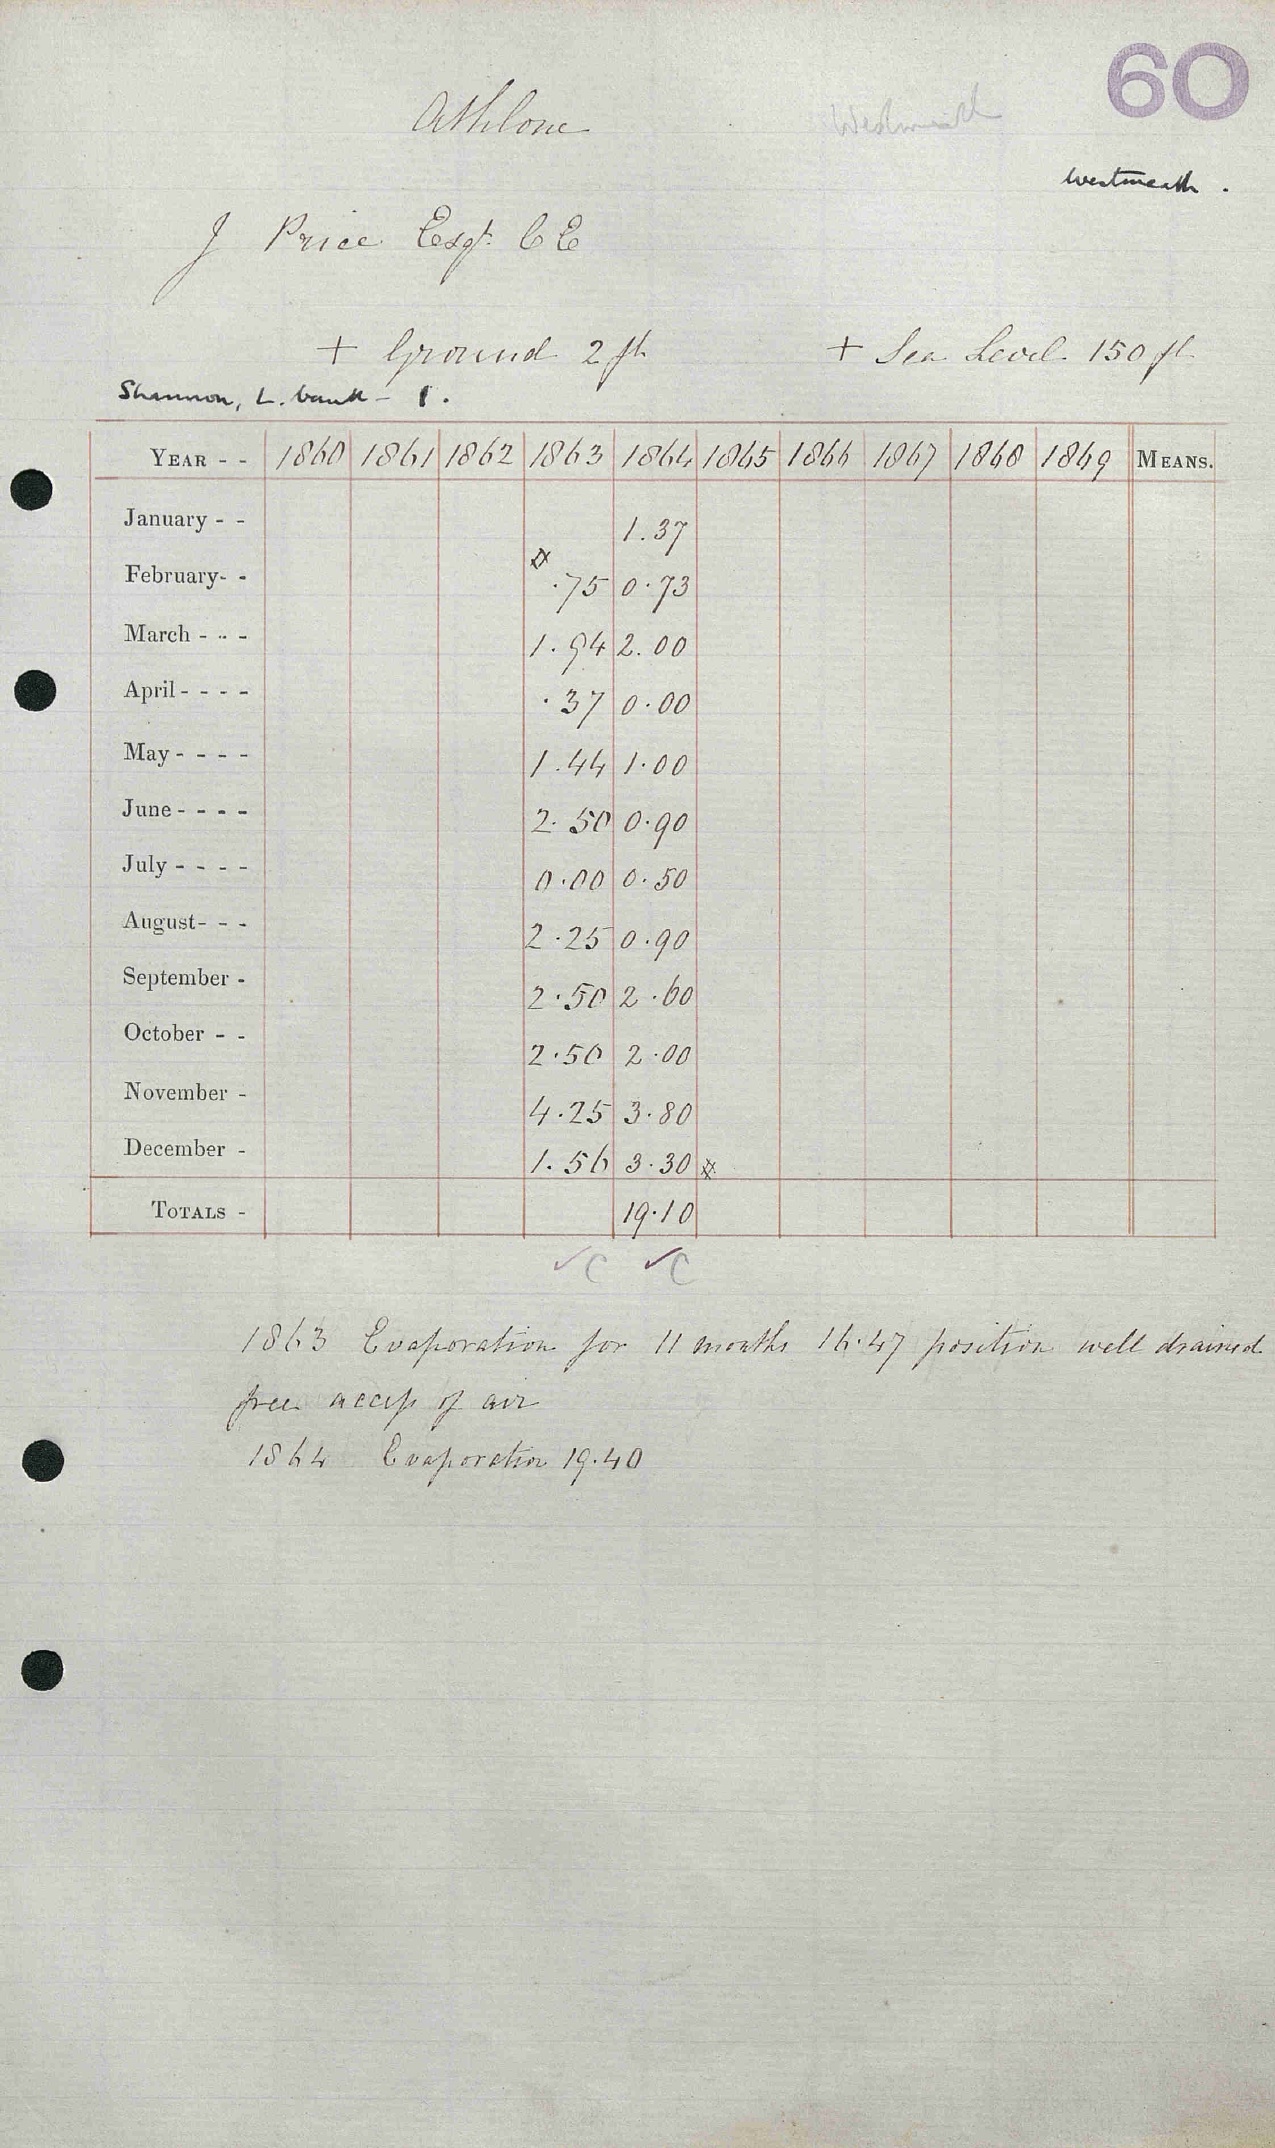 60
Athlone
Westmeath
Westmeath .
J Price Esqr. C E
+ Ground 2 ft + Sea Level 150 ft
Shannon, L. bank - 1.
YEAR - - 1860 1861 1862 1863 1864 1865 1866 1867 1868 1869 MEANS.
January - - 1.37
February- - .75 0.73
March - - - 1.94 2.00
April - - - - .37 0.00
May - - - - 1.44 1.00
June - - - - 2.50 0.90
July - - - - 0.00 0.50
August- - - 2.25 0.90
September - 2.50 2.60
October - - 2.50 2.00
November - 4.25 3.80
December - 1.56 3.30
TOTALS - 19.10
✓C ✓C
1863 Evaporation for 11 months 16.47 position well drained
free access of air
1864 Evaporation 19.40